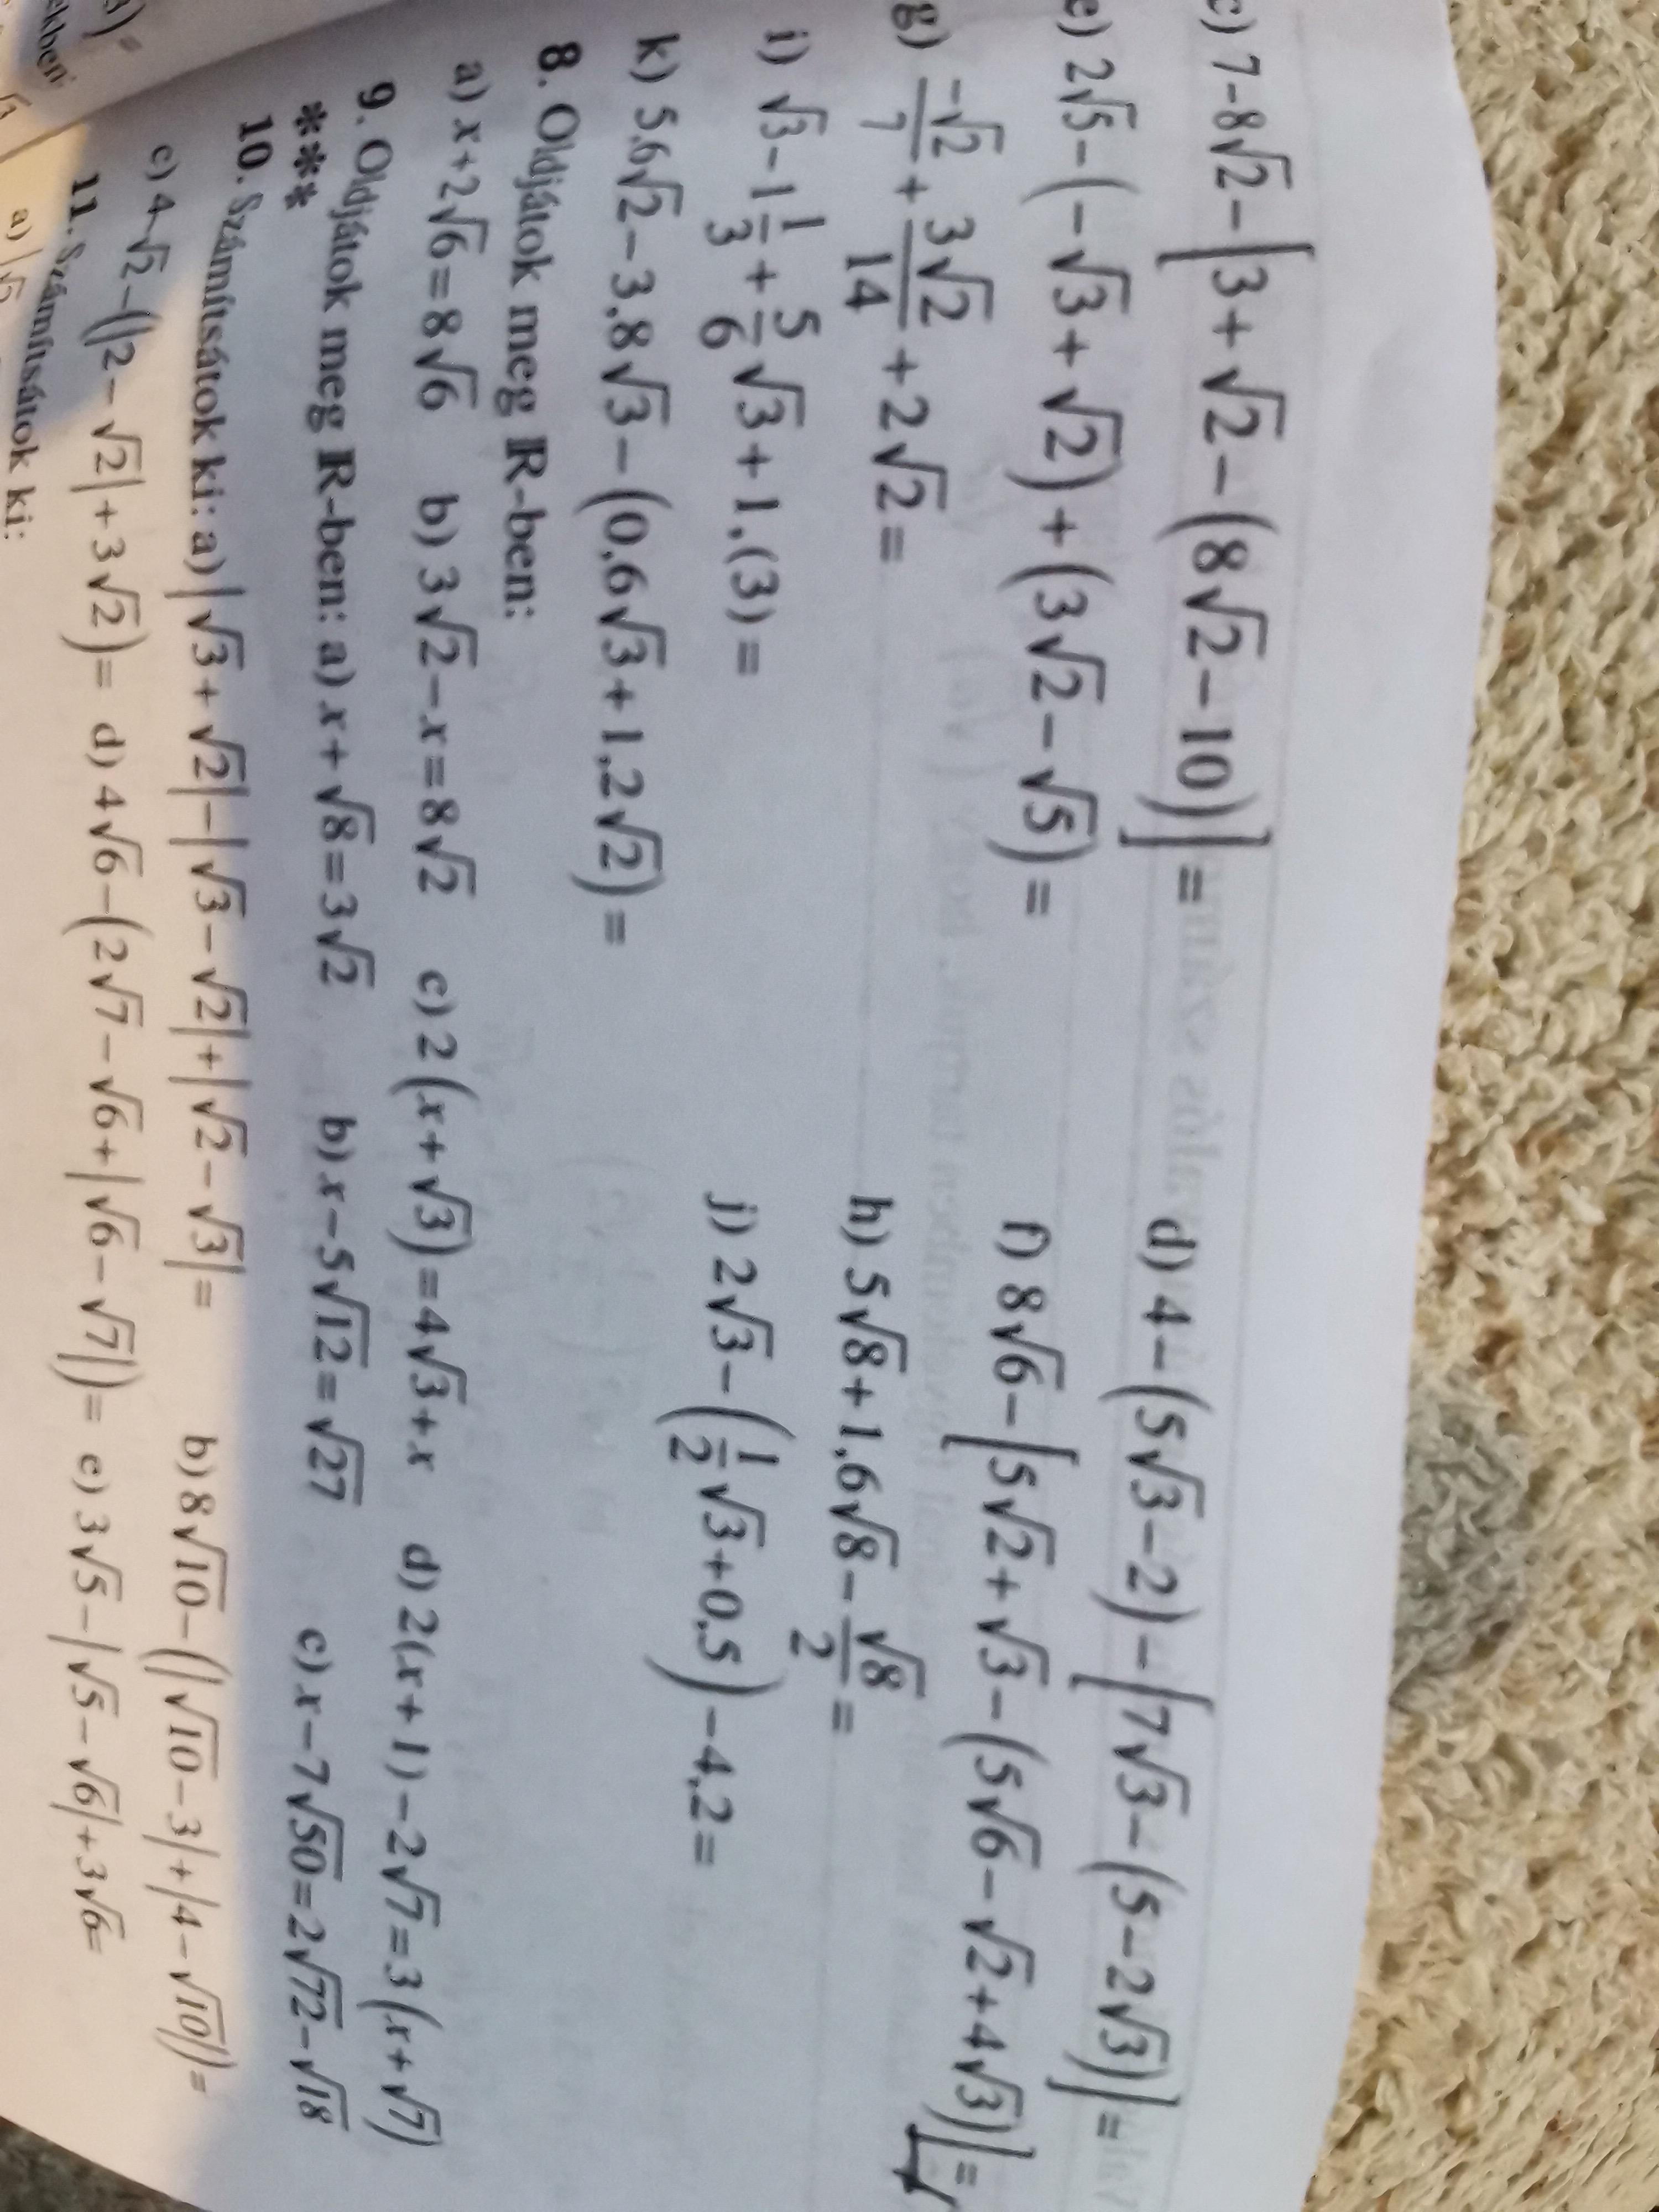 c) 7-8√2-[3+√2-(8√2-10)]= d) 4-(5√3-2)-[7√3-(5-2√3)]=
e) 2√5-(-√3+√2)+(3√2-√5)= f) 8√6-[5√2+√3-(5√6-√2+4√3)]=
g) -√2/7+3√2/14+2√2= h) 5√8+1,6√8-√8/2=
i) √3-1 1/3+5/6√3+1,(3)= j) 2√3-(1/2√3+0,5)-4,2=
k) 5,6√2-3,8√3-(0,6√3+1,2√2)=
8. Oldjátok meg ℝ-ben:
a) x+2√6=8√6 b) 3√2-x=8√2 c) 2(x+√3)=4√3+x d) 2(x+1)-2√7=3(x+√7)
9. Oldjátok meg ℝ-ben: a) x+√8=3√2 b) x-5√12=√27 c) x-7√50=2√72-√18
***
10. Számítsátok ki: a) |√3+√2|-|√3-√2|+|√2-√3|= b) 8√10-(|√10-3|+|4-√10|)=
c) 4√2-(|2-√2|+3√2)= d) 4√6-(2√7-√6+|√6-√7|)= e) 3√5-|√5-√6|+3√6=
11. Számítsátok ki:
a) |√2
3) =